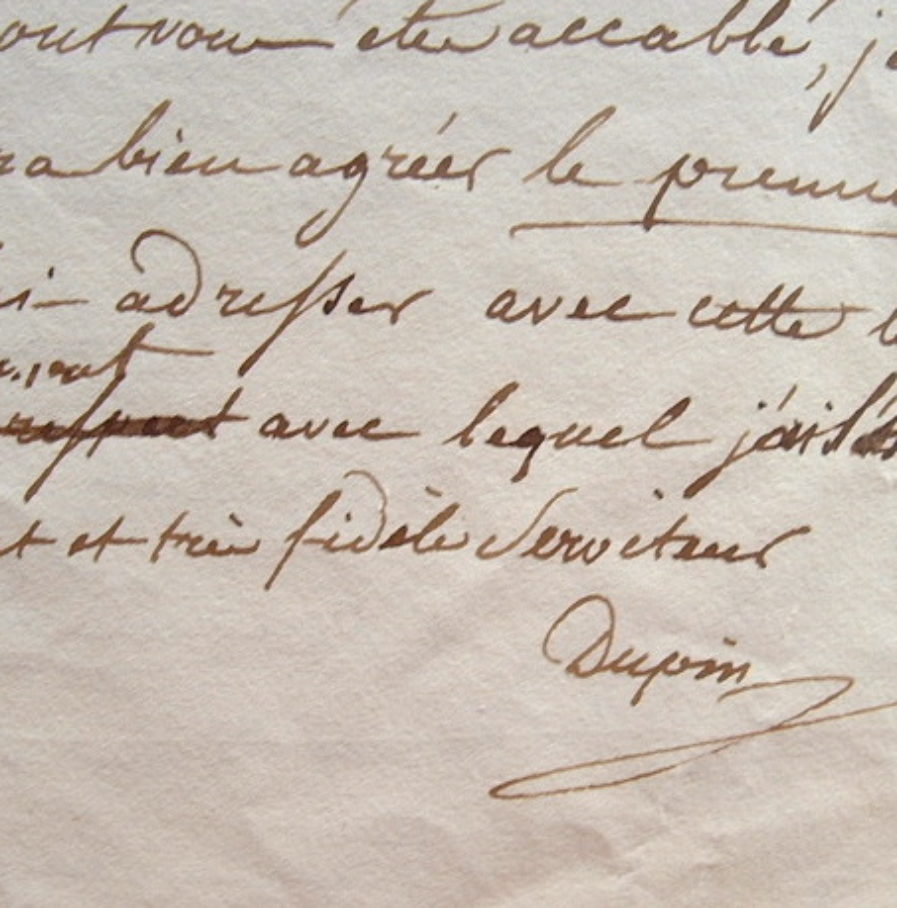 dont vous êtes accablé, j'
ra bien agréer le premie
ci adresser avec cette l
respect avec lequel j'ai l'
t et très fidèle Serviteur
Dupin